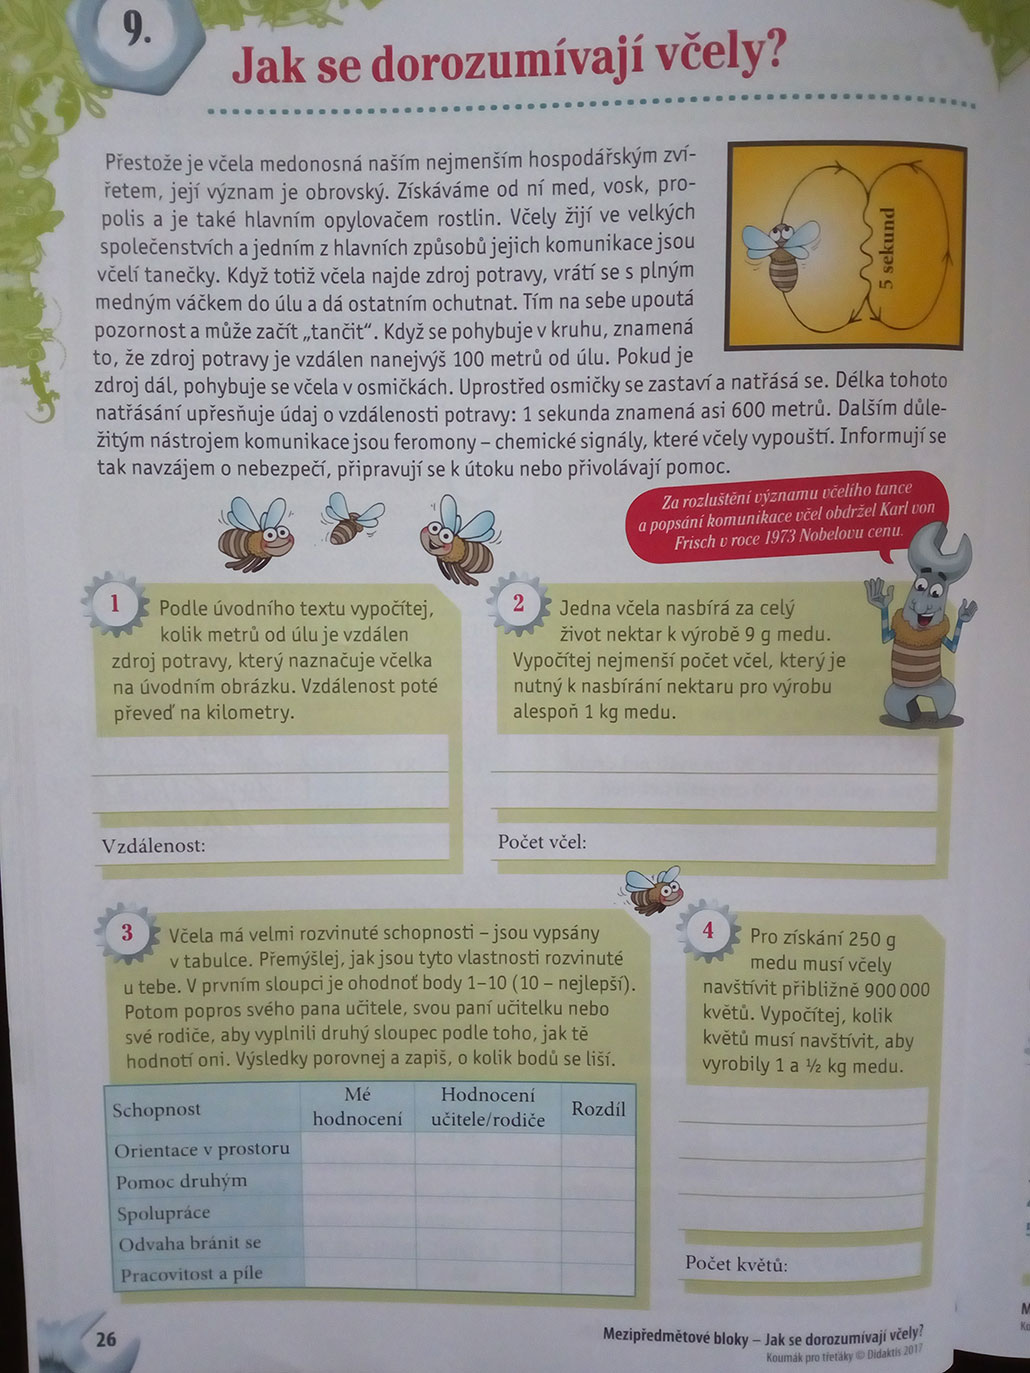 9.
Jak se dorozumívají včely?
Přestože je včela medonosná naším nejmenším hospodářským zví-
řetem, její význam je obrovský. Získáváme od ní med, vosk, pro-
polis a je také hlavním opylovačem rostlin. Včely žijí ve velkých
společenstvích a jedním z hlavních způsobů jejich komunikace jsou
včelí tanečky. Když totiž včela najde zdroj potravy, vrátí se s plným
medným váčkem do úlu a dá ostatním ochutnat. Tím na sebe upoutá
pozornost a může začít „tančit“. Když se pohybuje v kruhu, znamená
to, že zdroj potravy je vzdálen nanejvýš 100 metrů od úlu. Pokud je
zdroj dál, pohybuje se včela v osmičkách. Uprostřed osmičky se zastaví a natřásá se. Délka tohoto
natřásání upřesňuje údaj o vzdálenosti potravy: 1 sekunda znamená asi 600 metrů. Dalším důle-
žitým nástrojem komunikace jsou feromony – chemické signály, které včely vypouští. Informují se
tak navzájem o nebezpečí, připravují se k útoku nebo přivolávají pomoc.
5 sekund
Za rozluštění významu včelího tance
a popsání komunikace včel obdržel Karl von
Frisch v roce 1973 Nobelovu cenu.
1
Podle úvodního textu vypočítej,
kolik metrů od úlu je vzdálen
zdroj potravy, který naznačuje včelka
na úvodním obrázku. Vzdálenost poté
převeď na kilometry.
Vzdálenost:
2
Jedna včela nasbírá za celý
život nektar k výrobě 9 g medu.
Vypočítej nejmenší počet včel, který je
nutný k nasbírání nektaru pro výrobu
alespoň 1 kg medu.
Počet včel:
3
Včela má velmi rozvinuté schopnosti – jsou vypsány
v tabulce. Přemýšlej, jak jsou tyto vlastnosti rozvinuté
u tebe. V prvním sloupci je ohodnoť body 1–10 (10 – nejlepší).
Potom popros svého pana učitele, svou paní učitelku nebo
své rodiče, aby vyplnili druhý sloupec podle toho, jak tě
hodnotí oni. Výsledky porovnej a zapiš, o kolik bodů se liší.
Schopnost
Mé
hodnocení
Hodnocení
učitele/rodiče
Rozdíl
Orientace v prostoru
Pomoc druhým
Spolupráce
Odvaha bránit se
Pracovitost a píle
4
Pro získání 250 g
medu musí včely
navštívit přibližně 900 000
květů. Vypočítej, kolik
květů musí navštívit, aby
vyrobily 1 a ½ kg medu.
Počet květů:
26
Mezipředmětové bloky – Jak se dorozumívají včely?
Koumák pro třeťáky © Didaktis 2017